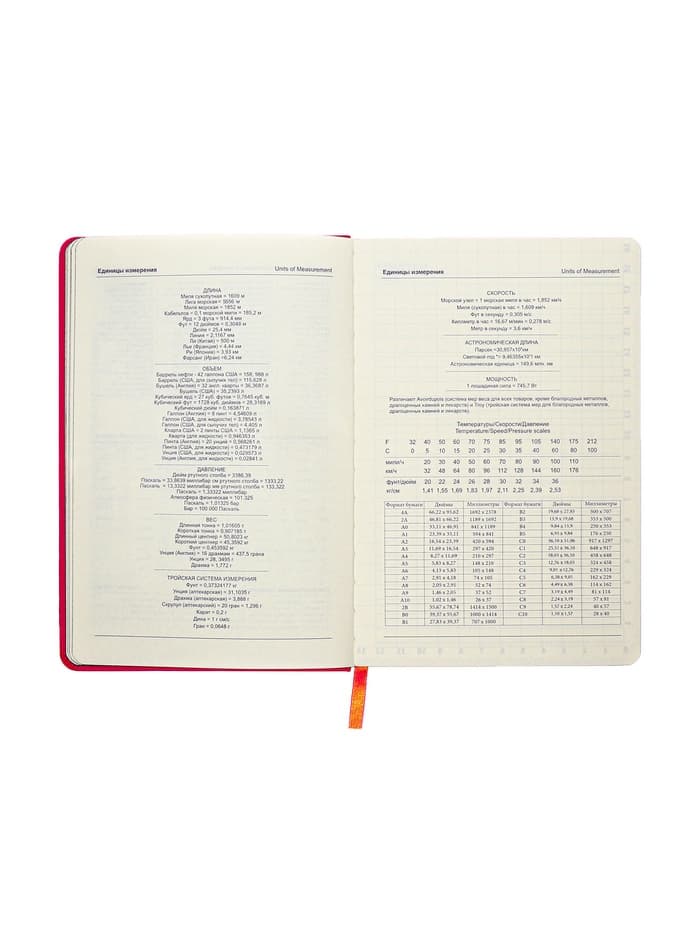 Единицы измерения Units of Measurement
ДЛИНА
Миля сухопутная = 1609 м
Лига морская = 5556 м
Миля морская = 1852 м
Кабельтов = 0,1 морской мили = 185,2 м
Ярд = 3 фута = 914,4 мм
Фут = 12 дюймов = 0,3048 м
Дюйм = 25,4 мм
Линия = 2,1167 мм
Ли (Китай) = 500 м
Лье (Франция) = 4,44 км
Ри (Япония) = 3,93 км
Фарсанг (Иран) =6,24 км
ОБЪЕМ
Баррель нефти - 42 галлона США = 158, 988 л
Баррель (США, для сыпучих тел) = 115,628 л
Бушель (Англия) = 32 англ. кварты = 36,3687 л
Бушель (США) = 35,2393 л
Кубический ярд = 27 куб. футов = 0,7645 куб. м
Кубический фут = 1728 куб. дюймов = 28,3169 л
Кубический дюйм = 0,163871 л
Галлон (Англия) = 8 пинт = 4,54609 л
Галлон (США, для жидкости) = 3,78543 л
Галлон (США, для сыпучих тел) = 4,405 л
Кварта США = 2 пинты США = 1,1365 л
Кварта (для жидкости) = 0,946353 л
Пинта (Англия) = 20 унций = 0,568261 л
Пинта (США, для жидкости) = 0,473179 л
Унция (США, для жидкости) = 0,029573 л
Унция (Англия, для жидкости) = 0,02841 л
ДАВЛЕНИЕ
Дюйм ртутного столба = 3386,39
Паскаль = 33,8639 миллибар мм ртутного столба = 1333,22
Паскаль = 13,3322 миллибар мм ртутного столба = 133,322
Паскаль = 1,33322 миллибар
Атмосфера физическая = 101,325
Паскаль = 1,01325 бар
Бар = 100 000 Паскаль
ВЕС
Длинная тонна = 1,01605 т
Короткая тонна = 0,907185 т
Длинный центнер = 50,8023 кг
Короткий центнер = 45,3592 кг
Фунт = 0,453592 кг
Унция (Англия) = 16 драммам = 437,5 грана
Унция = 28, 3495 г
Драхма = 1,772 г
ТРОЙСКАЯ СИСТЕМА ИЗМЕРЕНИЯ
Фунт = 0,37324177 кг
Унция (аптекарская) = 31,1035 г
Драхма (аптекарская) = 3,888 г
Скрупул (аптекарский) = 20 гран = 1,296 г
Карат = 0,2 г
Дина = 1 г см/с
Гран = 0,0648 г
Единицы измерения Units of Measurement
СКОРОСТЬ
Морской узел = 1 морская миля в час = 1,852 км/ч
Миля (сухопутная) в час = 1,609 км/ч
Фут в секунду = 0,305 м/с
Километр в час = 16,67 м/мин = 0,278 м/с
Метр в секунду = 3,6 км/ч
АСТРОНОМИЧЕСКАЯ ДЛИНА
Парсек =30,857х10¹²км
Световой год = 9,46305х10¹² км
Астрономическая единица = 149,6 млн. км
МОЩНОСТЬ
1 лошадиная сила = 745,7 Вт
Различают Avoirdupois (система мер веса для всех товаров, кроме благородных металлов,
драгоценных камней и лекарств) и Troy (тройская система мер для благородных металлов,
драгоценных камней и лекарств).
Температуры/Скорости/Давление
Temperature/Speed/Pressure scales
F 32 40 50 60 70 75 85 95 105 140 175 212
C 0 5 10 15 20 25 30 35 40 60 80 100
мили/ч 20 30 40 50 60 70 80 90 100 110
км/ч 32 48 64 80 96 112 128 144 160 176
фунт/дюйм 20 22 24 26 28 30 32 34 36
кг/см 1,41 1,55 1,69 1,83 1,97 2,11 2,25 2,39 2,53
Формат бумаги Дюймы Миллиметры Формат бумаги Дюймы Миллиметры
4A 66,22 x 93,62 1682 x 2378 B2 19,68 x 27,83 500 x 707
2A 46,81 x 66,22 1189 x 1682 B3 13,9 x 19,68 353 x 500
A0 33,11 x 46,81 841 x 1189 B4 9,84 x 13,9 250 x 353
A1 23,39 x 33,11 594 x 841 B5 6,93 x 9,84 176 x 250
A2 16,54 x 23,39 420 x 594 C0 36,10 x 51,06 917 x 1297
A3 11,69 x 16,54 297 x 420 C1 25,51 x 36,10 648 x 917
A4 8,27 x 11,69 210 x 297 C2 18,03 x 25,51 458 x 648
A5 5,83 x 8,27 148 x 210 C3 12,76 x 18,03 324 x 458
A6 4,13 x 5,83 105 x 148 C4 9,01 x 12,76 229 x 324
A7 2,91 x 4,13 74 x 105 C5 6,38 x 9,01 162 x 229
A8 2,05 x 2,91 52 x 74 C6 4,49 x 6,38 114 x 162
A9 1,46 x 2,05 37 x 52 C7 3,19 x 4,49 81 x 114
A10 1,02 x 1,46 26 x 37 C8 2,24 x 3,19 57 x 81
2B 55,67 x 78,74 1414 x 2000 C9 1,57 x 2,24 40 x 57
B0 39,37 x 55,67 1000 x 1414 C10 1,10 x 1,57 28 x 40
B1 27,83 x 39,37 707 x 1000